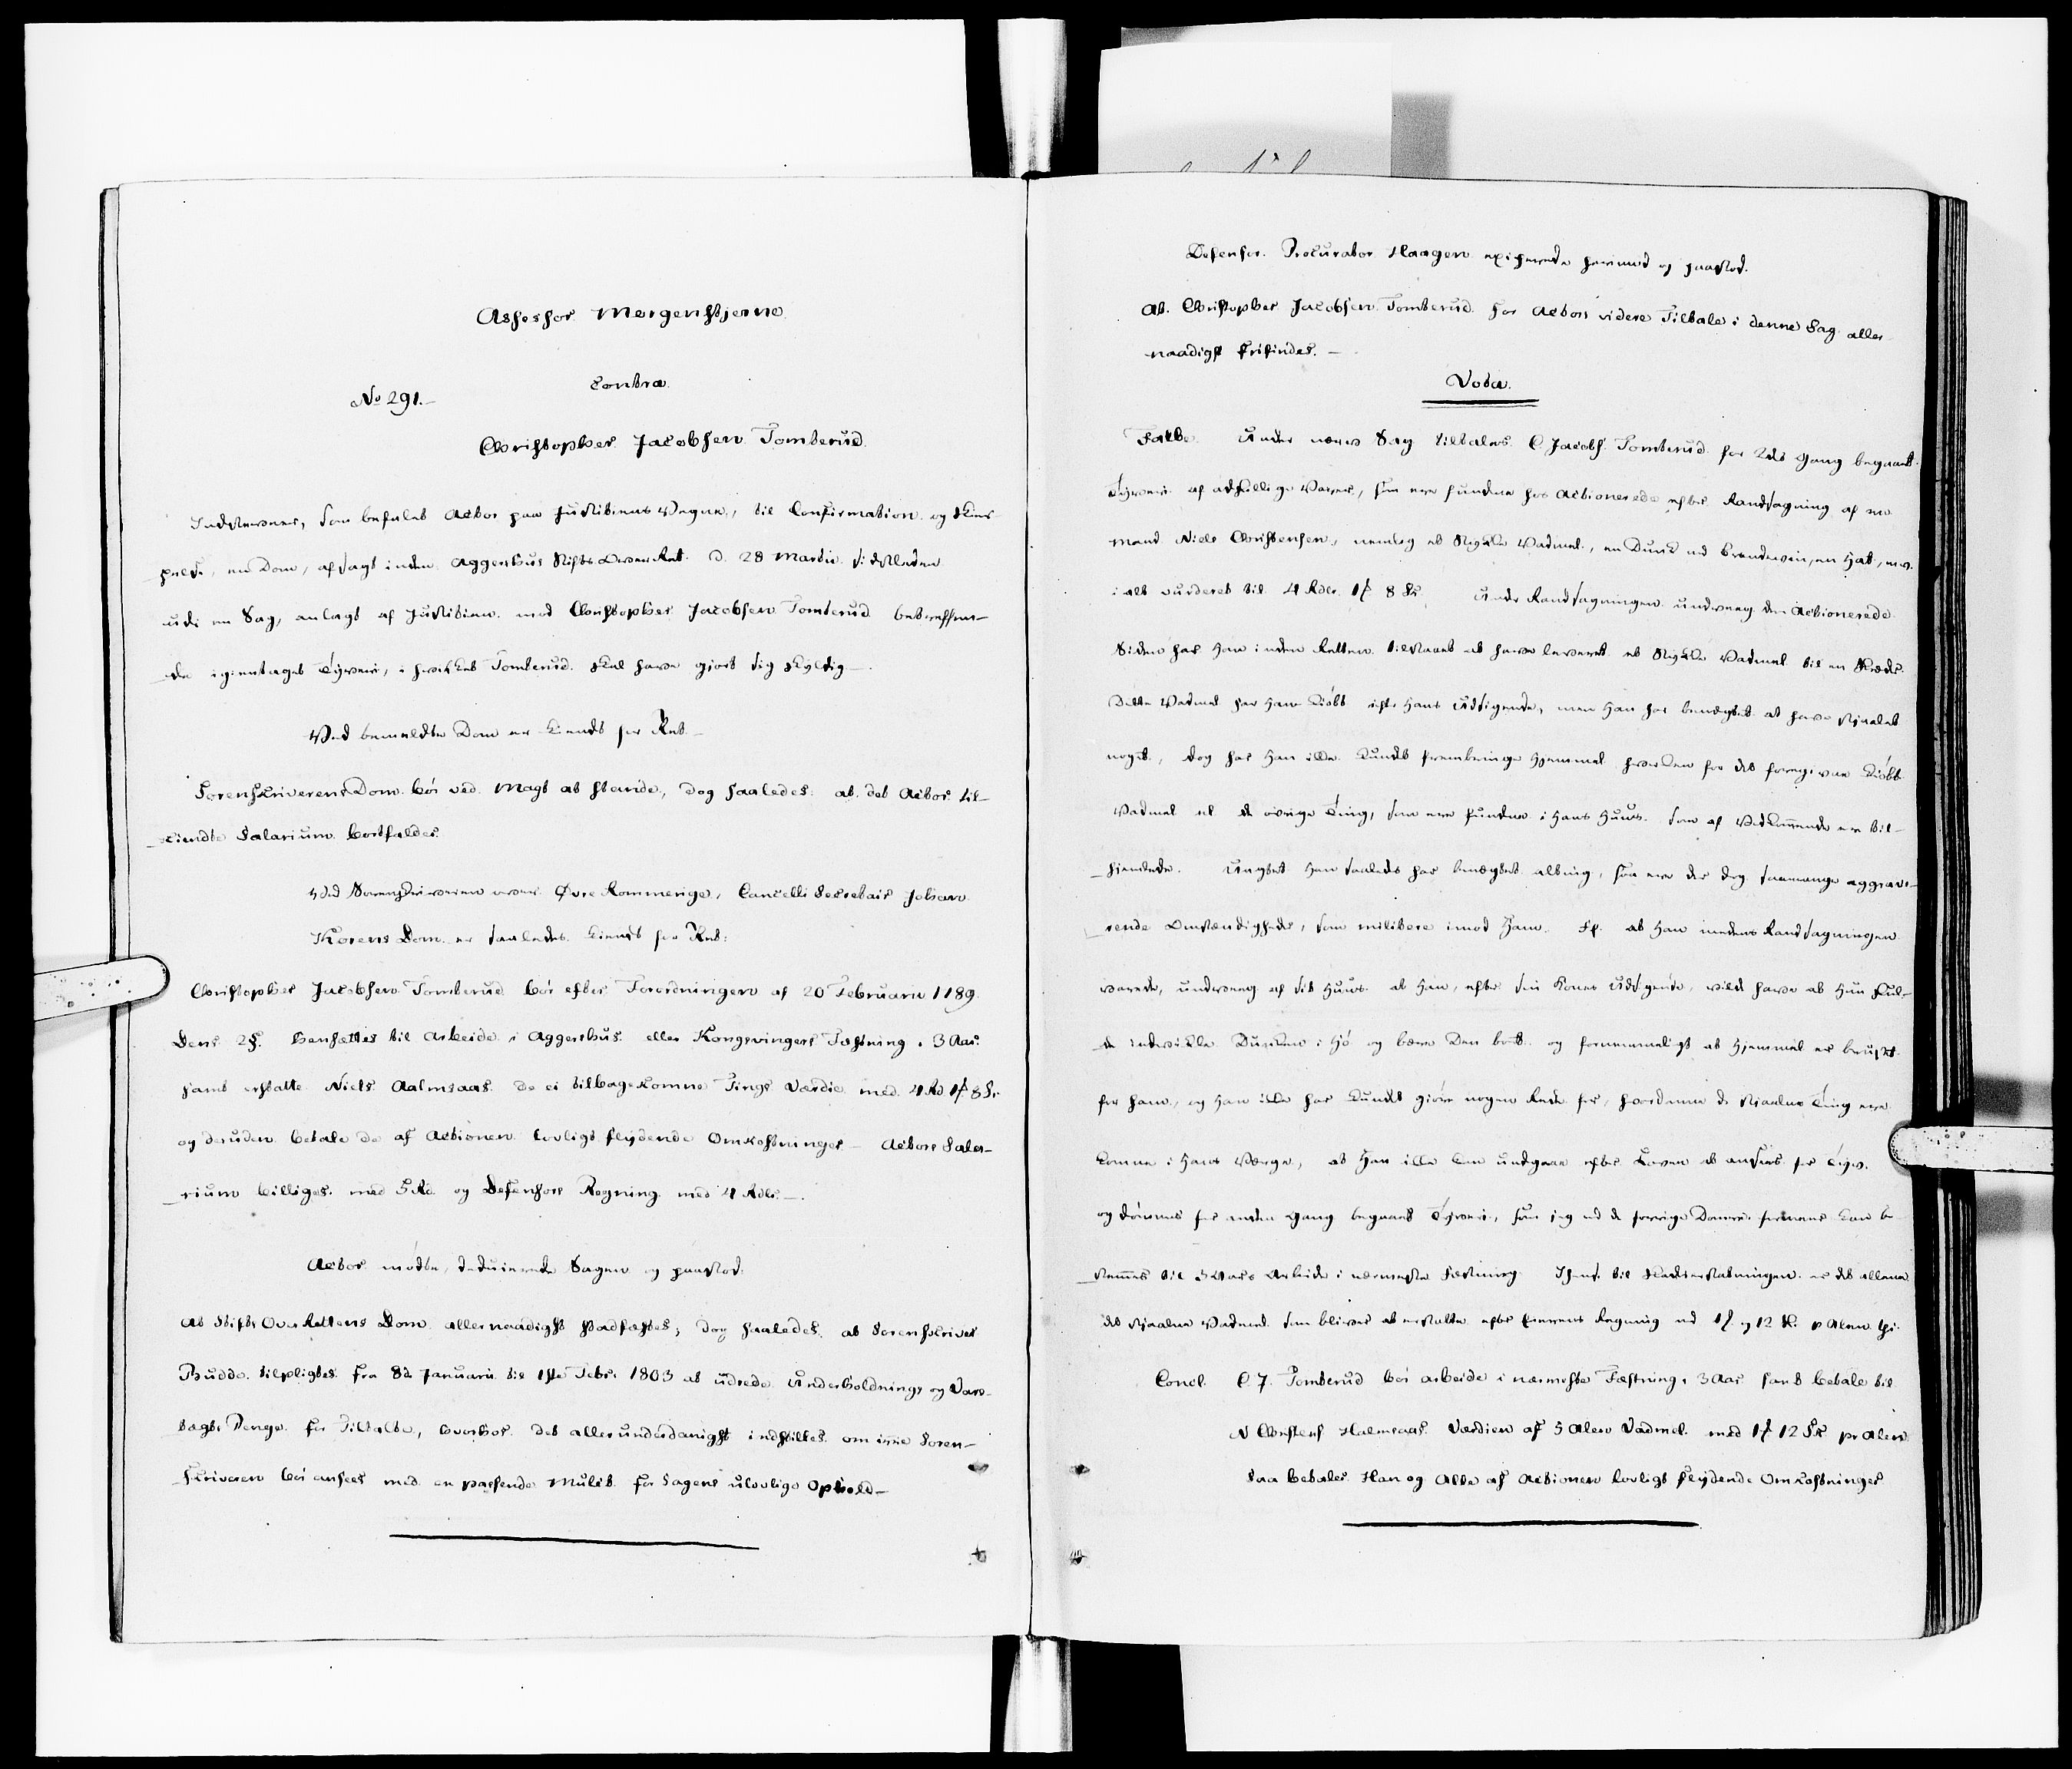 Assessor Morgenstjerne
contra
No 291.-
Christopher Jacobsen Tomterud
Indstevner, som befalet Actor paa Justitiens Vegne, til Confirmation og Skier-
pelse, en Dom, afsagt inden Aggershus Stifts Over Ret d. 28 Martii sidstleden
udi en Sag, anlagt af Justitien mod Christopher Jacobsen Tomterud betreffen-
de igientaget Tyverie, i hvilket Tomterud skal have giort sig skyldig -
Ved bemeldte Dom er kiendt for Ret -
Sorenskriverens Dom bør ved Magt at stande, dog saaledes at det Actor til-
kiendte Salarium bortfalder.
Ved Sorenskriveren over Øvre Rommerige, Cancellie Secretair Johan
Korens Dom er saaledes kiendt for Ret:
Christopher Jacobsen Tomterud bør efter Forordningen af 20 Februarii 1789
dens 2§. hensættes til Arbeide i Aggershus eller Kongsvingers Fæstning i 3 Aar.
samt erstatte Niels Aalmsaas de ei tilbagekomne Tings Værdie med 4 Rd 1 ₰ 8 s.
og desuden betale de af Actionen lovligt flydende Omkostninger - Actors Sala-
rium billiges med 5 Rd. og Defensors Regning med 4 Rdlr. -
Actor mødte, deducerede Sagen og paastod:
At Stifts Over Rettens Dom allernaadigst stadfæstes, dog saaledes at Sorenskriver
Budde tilpligtes fra 8de Januarii til 1ste Febr. 1803 at udrede Underholdnings og Vare-
tægts Penge for Tiltalte, hvorhos det allerunderdanigst indstilles om inie Soren-
skriveren bør ansees med en passende Mulct for Sagens ulovlige Ophold -
Defensor Procurator Haagen exiperede herimod og paastod.
At Christopher Jacobsen Tomterud for Actors videre Tiltale i denne Sag aller
naadigst frifindes. -
Vota.
Falbe. Under nærv Sag tiltales C. Jacobs. Tomterud for 2det Gang begaaet
Tyverie af adskillige Varer, som ere fundne hos Actionerede efter Randsagning af en
Mand Niels Christensen, nemlig et Stykke Vadmel, en Dunk med Brendeviin, en Hat, m v.
i alt vurderet til 4 Rdlr. 1 ₰ 8 Sk. Under Randsagningen undveeg den Actionerede
Siden har Han inden Retten tilstaaet at have leveret et Stykke Vadmel til en Skræder.
Dette Vadmel har Han kiøbt efter Hans Udsigende, men Han har benægtet at have stiaalet
noget, dog har Han ikke kundet frembringe Hjemmel hverken for det foregivne kiøbte
Vadmel el de øvrige Ting, som ere fundne i Hans Huus som af Vedkommende ere til-
hjemlede. Uagtet Han saaledes har benægtet alting, saa ere der dog saamange aggrave-
rende Omstændigheder, som militere imod Ham. Ex. at Han medens Randsagningen
varede, undveeg af sit Huus at Han, efter sin Kones Udsigende, vilde have at Hun skul-
de indvikle Dunken i Hø og bære den bort og fornemmeligt at Hjemmel er brustet
for ham, og Han ikke har kundet giøre nogen Rede for, hvordanne de stiaalne Ting ere
komne i Hans Værge, at Han ikke kan undgaae efter Loven at ansees for Tyv.
og dømmes for anden Gang begaaet Tyverie, som jeg ved de forrige Domme formener kan be-
stemmes til 3 Aars Arbeide i nærmeste Fæstning. Ihens. til Skadeserstatningen er det allene
det stiaalne Vadmel som bliver at erstatte efter Eierens Regning med 1 ₰ og 12 Sk. p Alen thi
Concl. C. J. Tomterud bør arbeide i nærmeste Fæstning i 3 Aar samt betale til
N Christens Halmsaas Værdien af 5 Alen Vadmel med 1 ₰ 12 Sk pr Alen
saa betaler Han og Alle af Actionen lovligt flydende Omkostninger